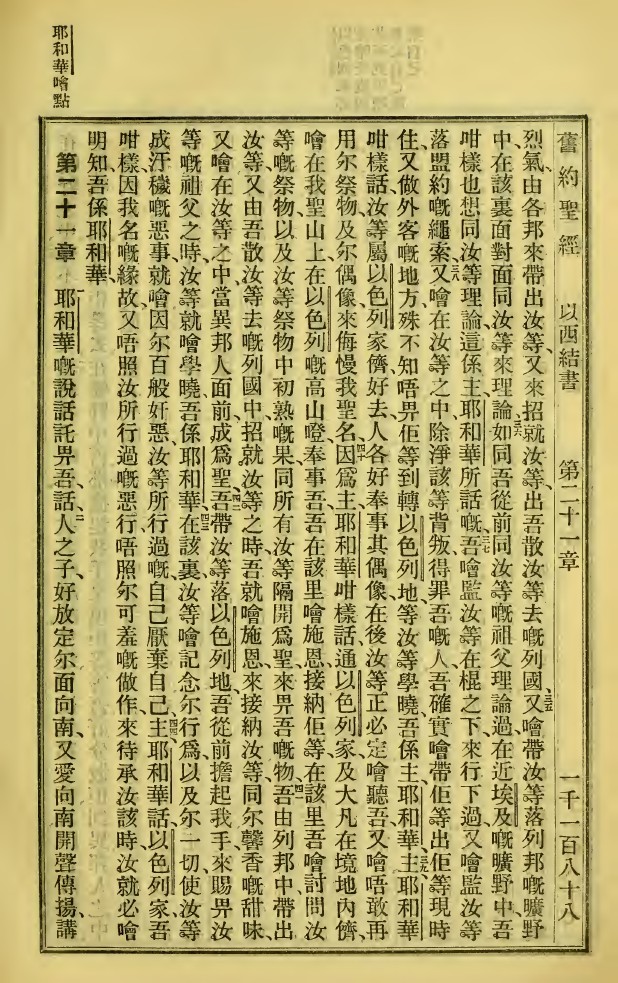 舊約聖經 以西結書 第二十一章 一千一百八十八
烈氣、由各邦來帶出汝等、又來招就汝等、出吾散汝等去嘅列國、三五又噲帶汝等落列邦嘅曠野
中、在該裏面對面同汝等來理論、三六如同吾從前同汝等嘅祖父理論過、在近埃及嘅曠野中、吾
咁樣也想同汝等理論、這係主耶和華所話嘅、三七吾噲監汝等在棍之下來行下過、又噲監汝等
落盟約嘅繩索、三八又噲在汝等之中、除淨該等背叛得罪吾嘅人、吾確實噲帶佢等出佢等現時
住又做外客嘅地方、殊不知唔畀佢等到轉以色列地、等汝等學曉、吾係主耶和華、三九主耶和華
咁樣話、汝等屬以色列家儕、好去人各好奉事其偶像、在後汝等正必定噲聽吾、又噲唔敢再
用尔祭物、及尔偶像、來侮慢我聖名、四十因爲主耶和華咁樣話、通以色列家、及大凡在境地內儕、
噲在我聖山上、在以色列嘅高山嶝奉事吾、吾在該里噲施恩、接納佢等、在該里吾噲討問汝
等嘅祭物、以及汝等祭物中初熟嘅果、同所有汝等隔開爲聖、來畀吾嘅物、四一吾由列邦中帶出
汝等、又由吾散汝等去嘅列國中、招就汝等之時、吾就噲施恩、來接納汝等、同尔馨香嘅甜味、
又噲在汝等之中、當異邦人面前、成爲聖、四二吾帶汝等落以色列地、吾從前擔起我手、來賜畀汝
等嘅祖父之時、汝等就噲學曉、吾係耶和華、四三在該裏、汝等噲記念尔行爲、以及尔一切、使汝等
成汙穢嘅惡事、就噲因尔百般奸惡、汝等所行過嘅、自己厭棄自己、四四主耶和華話、以色列家、吾
咁樣因我名嘅緣故、又唔照汝所行過嘅惡行、唔照尔可羞嘅做作、來待承汝、該時汝就必噲
明知吾係耶和華、
第二十一章 一耶和華嘅說話託畀吾、話、二人之子、好放定尔面向南、又愛向南開聲傳揚、講
耶和華噲點